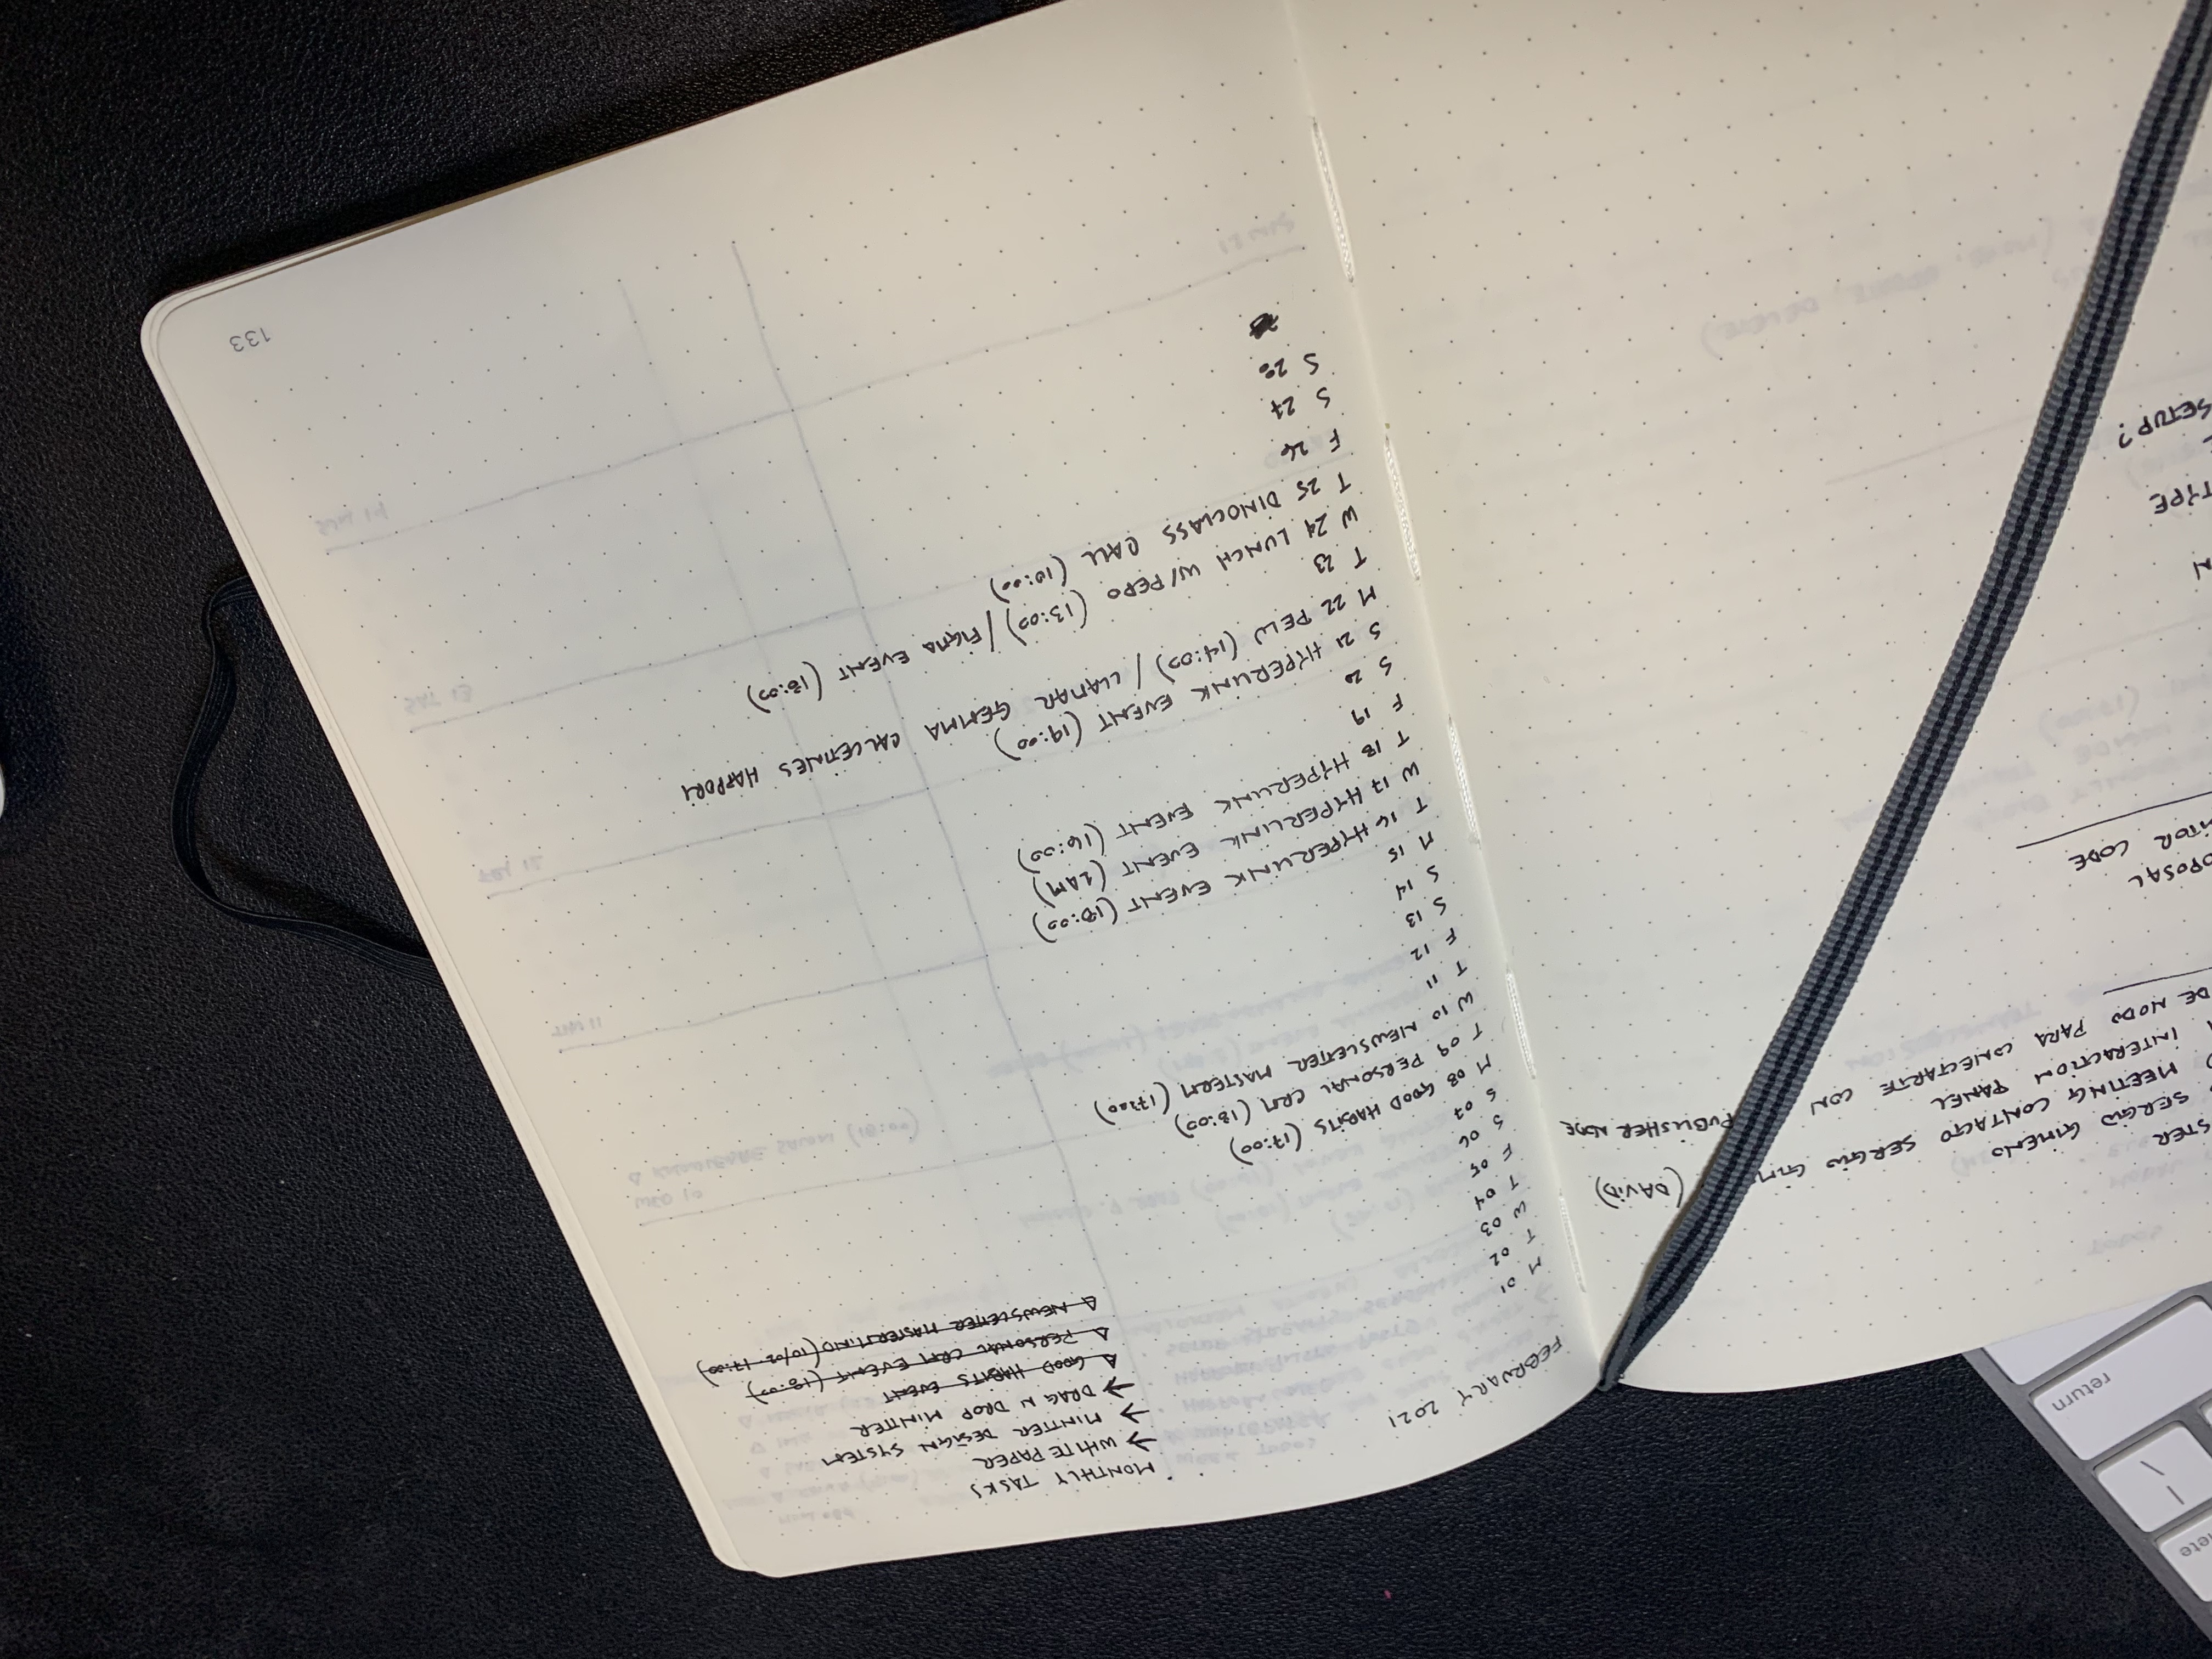 return
\
STER
SERGIO GIMENO
MEETING CONTACTO SERGIO (DAVID)
INTERACTION PANEL
DE NODO PARA CONECTARTE CON PUBLISHER NODE
OPOSAL
ITOR CODE
N
TYPE
SETUP?
FEBRUARY 2021
M 01
T 02
W 03
T 04
F 05
S 06
S 07
M 08 GOOD HABITS (17:00)
T 09 PERSONAL CRM (18:00)
W 10 NEWSLETTER MASTERM (17:00)
T 11
F 12
S 13
S 14
M 15
T 16 HYPERLINK EVENT (18:00)
W 17 HYPERLINK EVENT (1AM)
T 18 HYPERLINK EVENT (16:00)
F 19
S 20
S 21 HYPERLINK EVENT (19:00)
M 22 PELU (14:00) / LLAMAR GEMMA CALCETINES HAPPORI
T 23
W 24 LUNCH W/PEPO (13:00) / FIGMA EVENT (18:00)
T 25 DINOCLASS CALL (10:00)
F 26
S 27
S 28
MONTHLY TASKS
→ WHITEPAPER
→ MINTTER DESIGN SYSTEM
→ DRAG N DROP MINTTER
△ GOOD HABITS EVENT
△ PERSONAL CRM EVENT (18:00)
△ NEWSLETTER MASTERMIND (10/02 17:00)
133